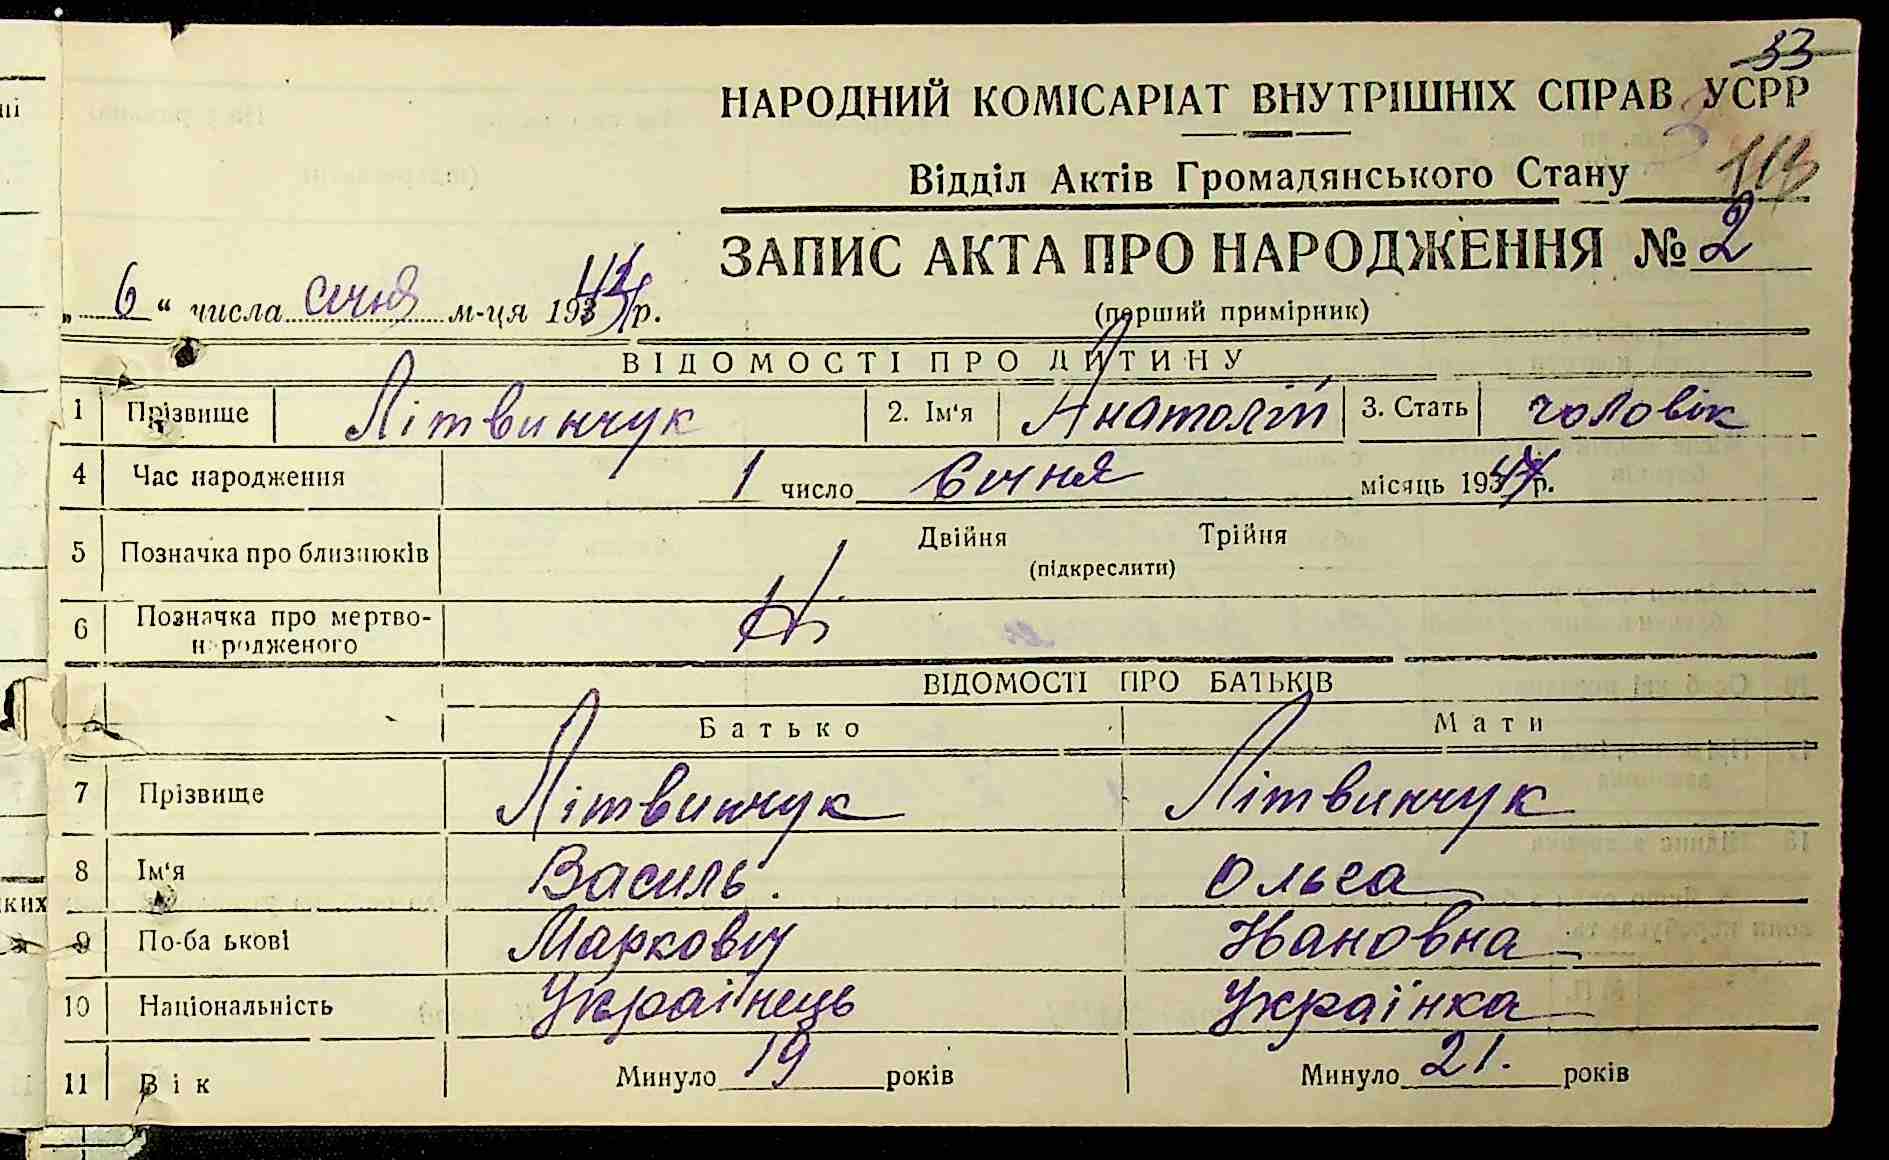 33
НАРОДНИЙ КОМІСАРІАТ ВНУТРІШНІХ СПРАВ УСРР
Відділ Актів Громадянського Стану
113
ЗАПИС АКТА ПРО НАРОДЖЕННЯ № 2
„ 6 “ числа січня м-ця 1944 р.
(перший примірник)
ВІДОМОСТІ ПРО ДИТИНУ
1 Прізвище Літвинчук 2. Ім'я Анатолій 3. Стать чоловік
4 Час народження 1 число Січня місяць 1944 р.
5 Позначка про близнюків Двійня Трійня
(підкреслити)
6 Позначка про мертво-
народженого Ні
ВІДОМОСТІ ПРО БАТЬКІВ
Батько Мати
7 Прізвище Літвинчук Літвинчук
8 Ім'я Василь. Ольга
9 По-ба ькові Маркович Івановна
10 Національність Українець Українка
11 Вік Минуло 19 років Минуло 21. років
ких